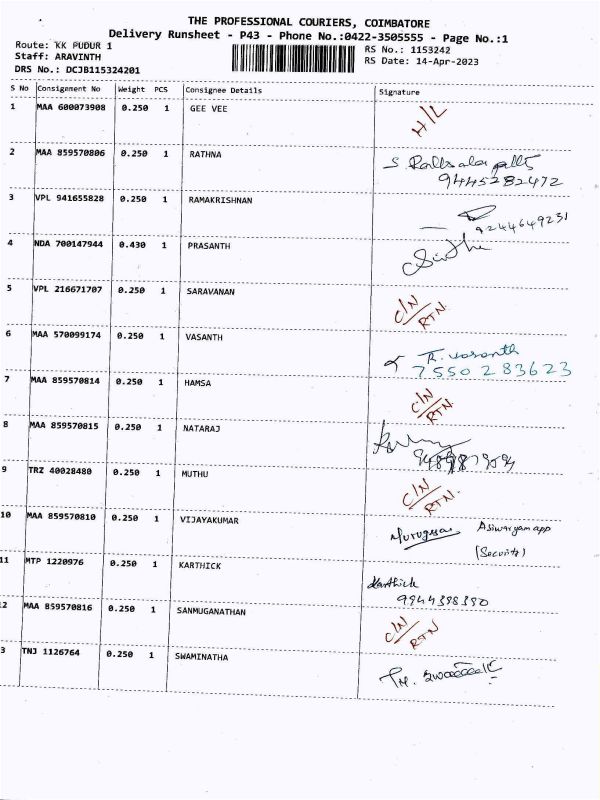 THE PROFESSIONAL COURIERS, COIMBATORE
Delivery Runsheet - P43 - Phone No.:0422-3505555 - Page No.:1
Route: KK PUDUR 1
Staff: ARAVINTH
DRS No.: DCJB115324201
RS No.: 1153242
RS Date: 14-Apr-2023
S No Consignment No Weight PCS Consignee Details Signature
1 MAA 600073908 0.250 1 GEE VEE H/L
2 MAA 859570806 0.250 1 RATHNA S.
9445282472
3 VPL 941655828 0.250 1 RAMAKRISHNAN
9244649251
4 NDA 700147944 0.430 1 PRASANTH
5 VPL 216671707 0.250 1 SARAVANAN C/N
RTN.
6 MAA 570099174 0.250 1 VASANTH R. vasanth
7550283623
7 MAA 859570814 0.250 1 HAMSA C/N
RTN.
8 MAA 859570815 0.250 1 NATARAJ
9 TRZ 40028480 0.250 1 MUTHU C/N
RTN.
10 MAA 859570810 0.250 1 VIJAYAKUMAR Murugesan
(Security)
11 MTP 1220976 0.250 1 KARTHICK Karthick
9944398390
2 MAA 859570816 0.250 1 SANMUGANATHAN C/N
RTN
3 TNJ 1126764 0.250 1 SWAMINATHA